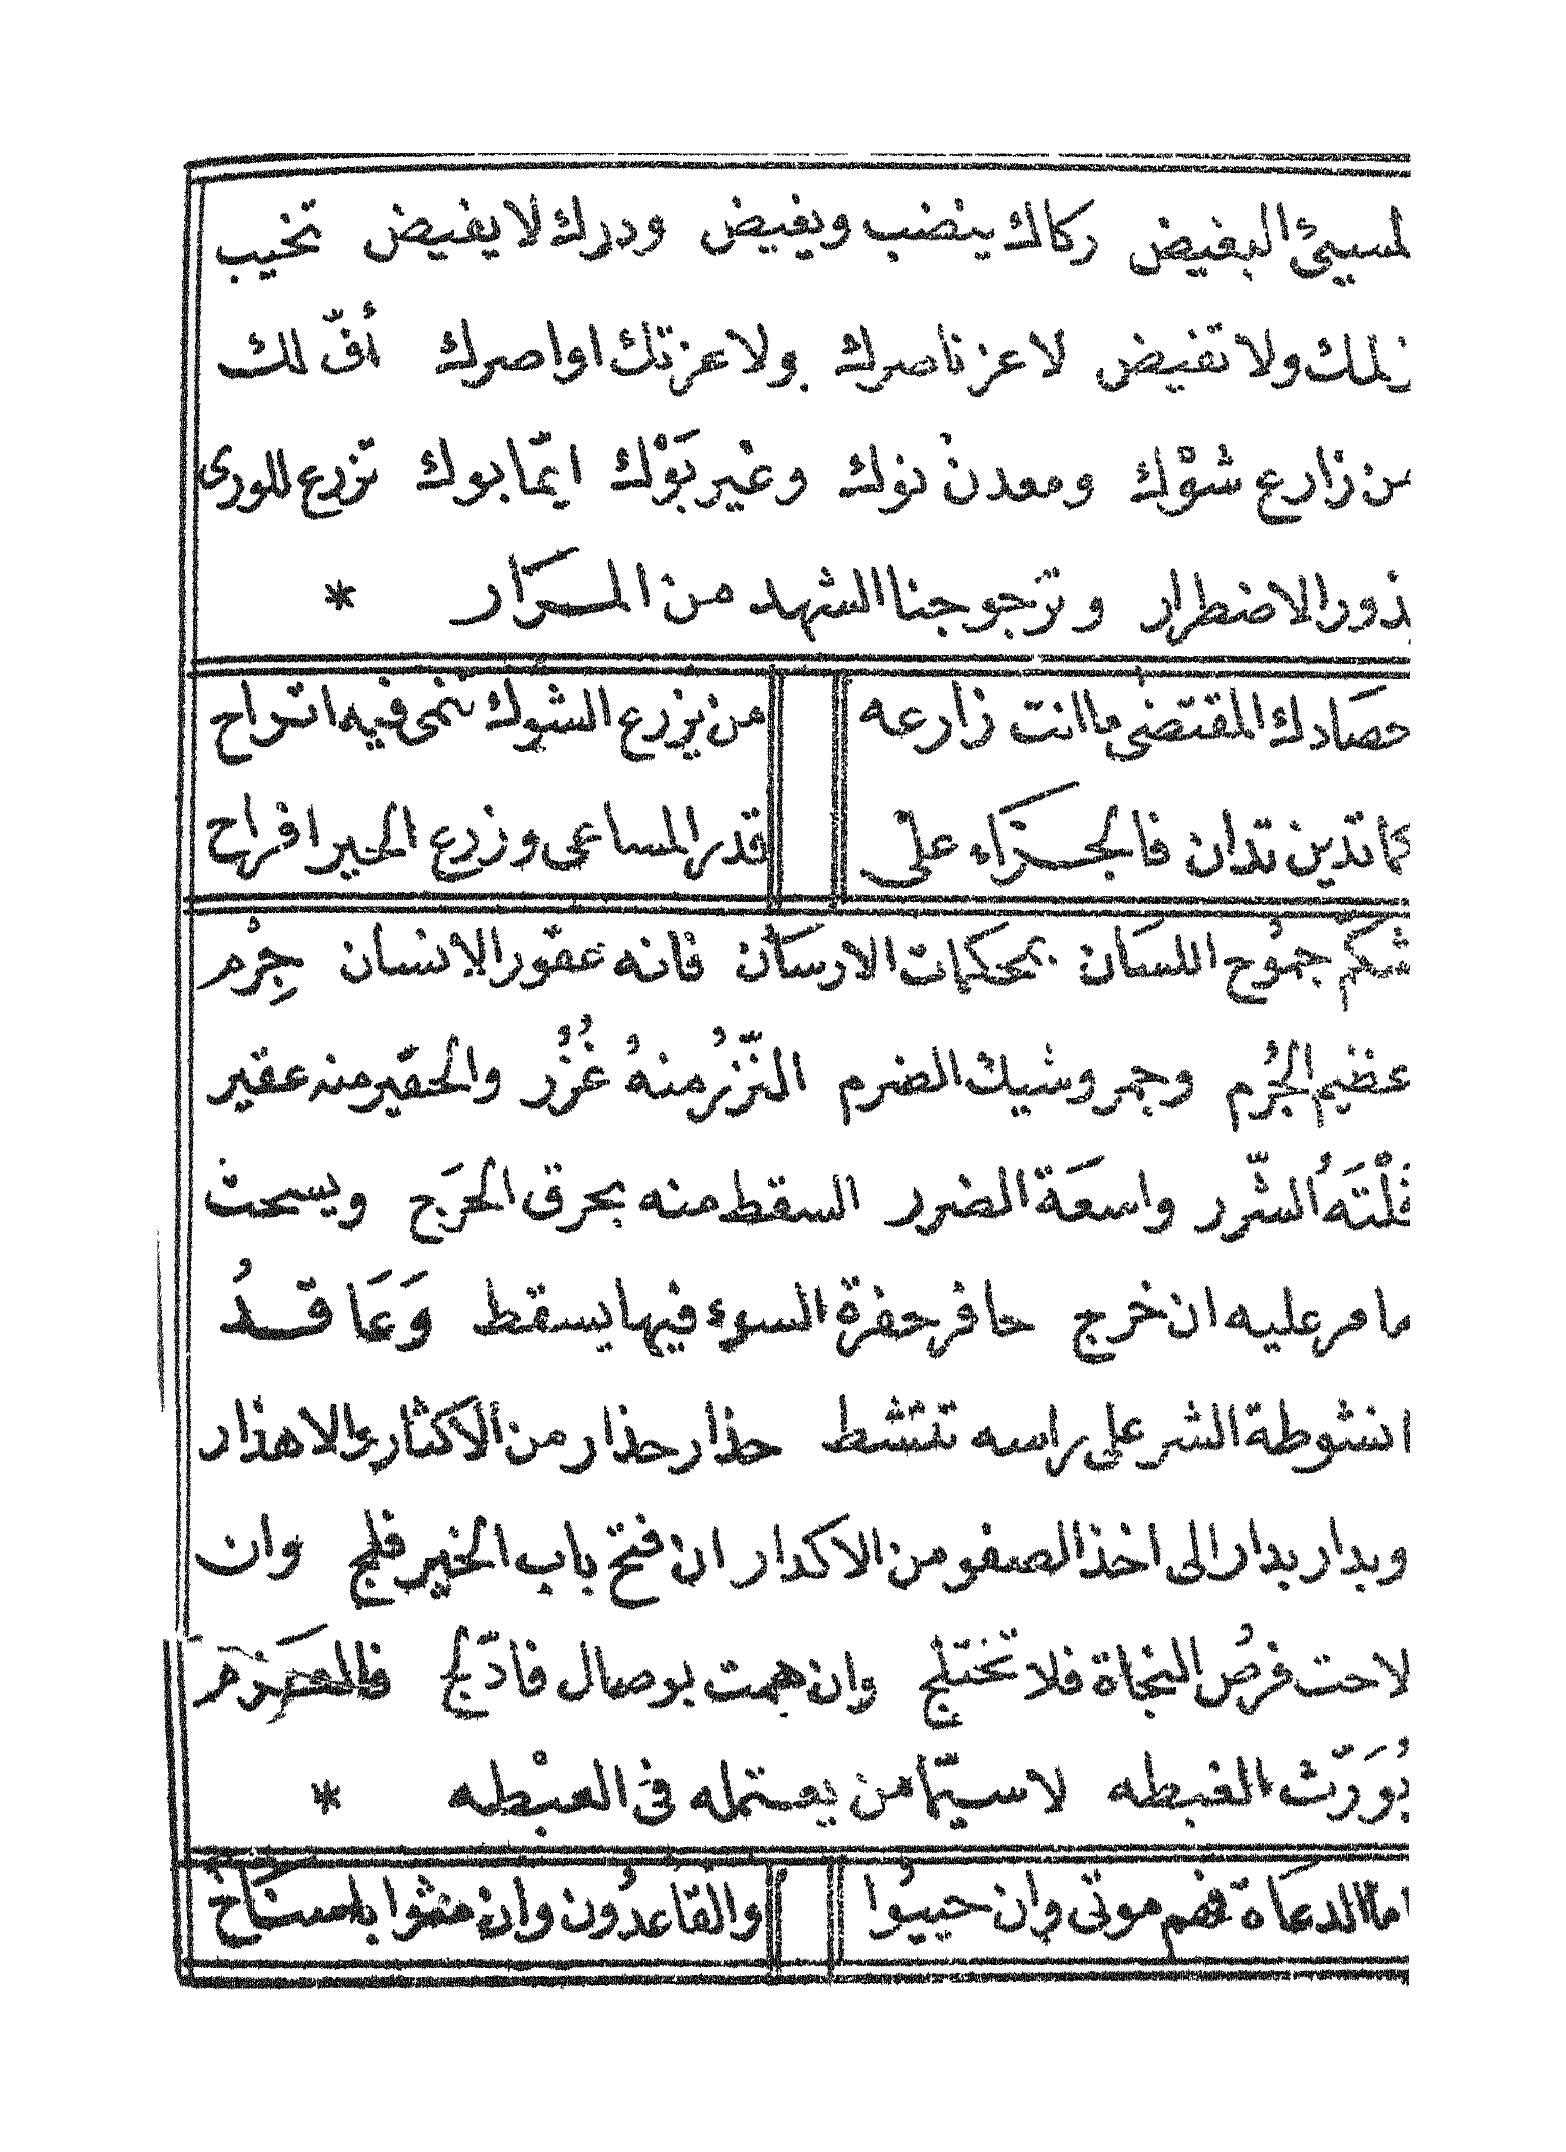 لمسيئ البغيض ركاك ينضب ويغيض ودرك لا يفيض تخيب
زللك ولا تفيض لا عز ناصرك ولا عزتك اواصرك أفّ لك
من زارع شوْك ومعدن نوك وغير بَوْك ايّما بوك تزرع للورى
بذور الاضطرار وترجو جنا الشهد من المَرار *
حصَادك المقتضى ما انت زارعه من يزرع الشوك ينمى فيه اتراح
كما تدين تدان فالجَزاء على قدر المساعى وزرع الخير افراح
شكَم جمُوح اللسَان بمحكمات الارسَان فانه عقور الانسان جِرْم
عظيم الجُرم وجمر وشيك الضرم النّزرُ منهُ غُزُر والحقير منه عقير
فلْتَهُ الشّرر واسعَة الضرر السقط منه بحرق الحرَج ويسحت
ما مر عليه ان خرج حافر حفرة السوء فيها يسقط وَعَاقدُ
انشوطة الشر على راسه تنتشط حذار حذار من الاكثار والاهذار
وبدار بدار الى اخذ الصفو من الاكدار ان فتح باب الخير فلج وان
لاحت فرصُ النجاة فلا تختلج وان همت بوصال فادّلج فالعَزم
يُوَرّث الغبطه لاسيّما من يعتمله فى الغبْطه *
امّا الدعَاة فهم موتى وان حييُوا والقاعدُون وان متوا بامسنَاخ